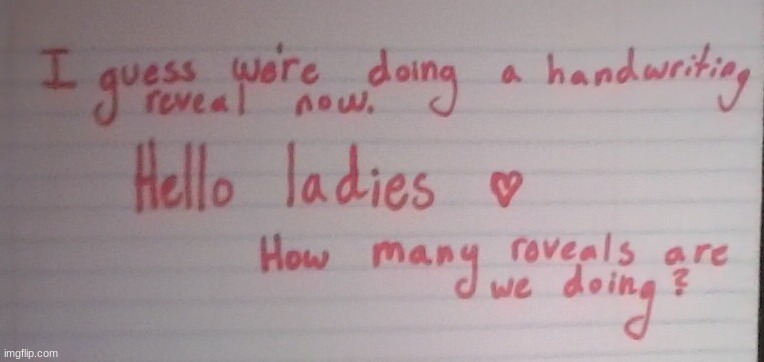 I guess we're doing a handwriting
reveal now.
Hello ladies ♥
How many reveals are
we doing?
imgflip.com